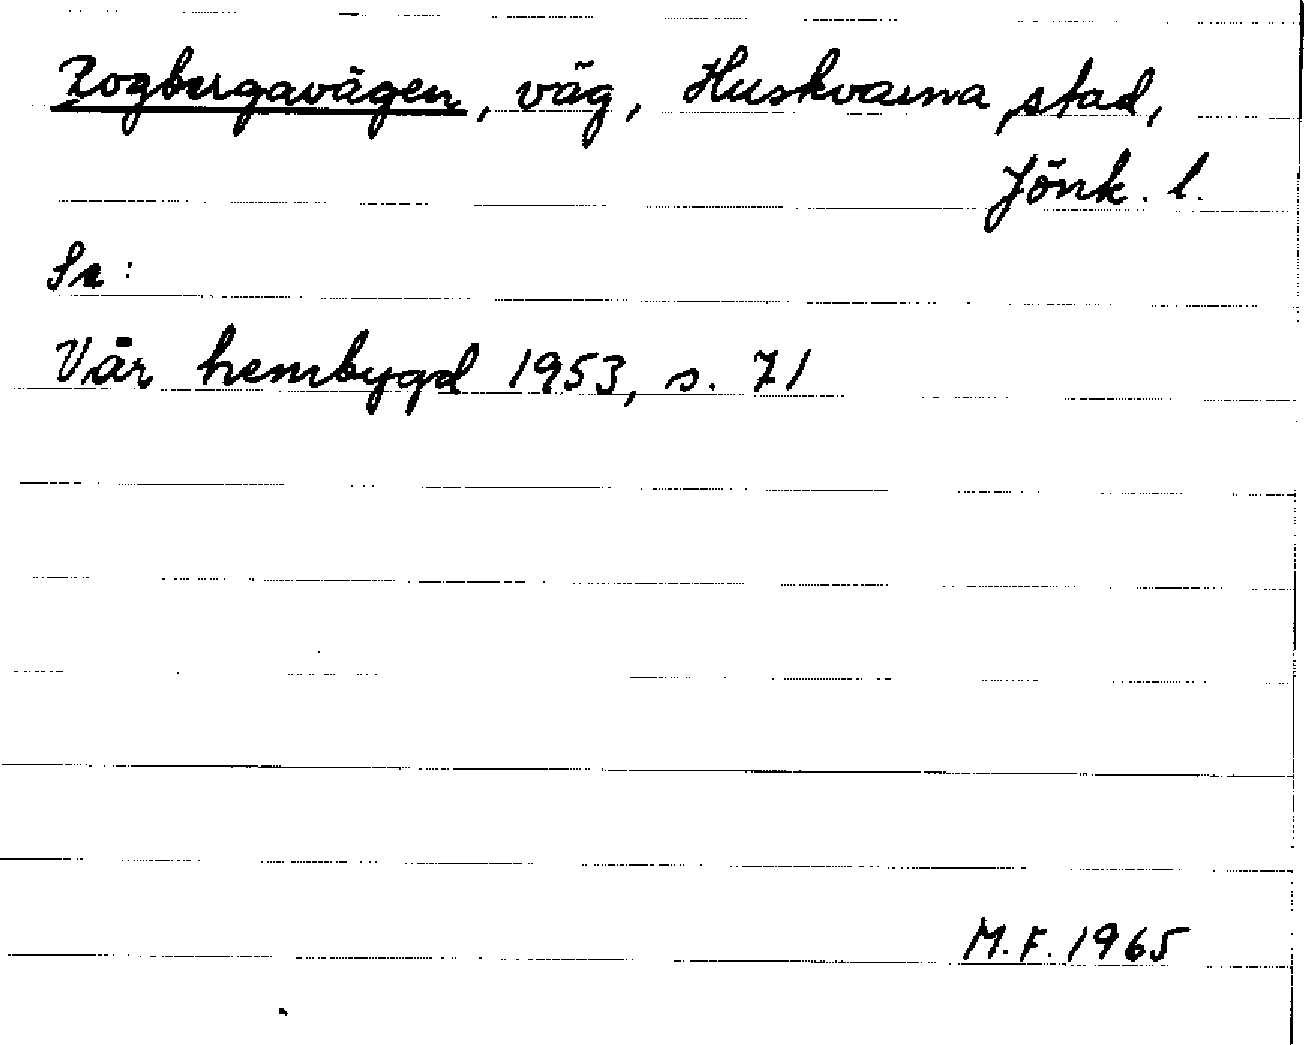 Rogbergavägen, väg, Huskvarna stad,
Jönk. l.
Se:
Vår hembygd 1953, s. 71
M.F. 1965